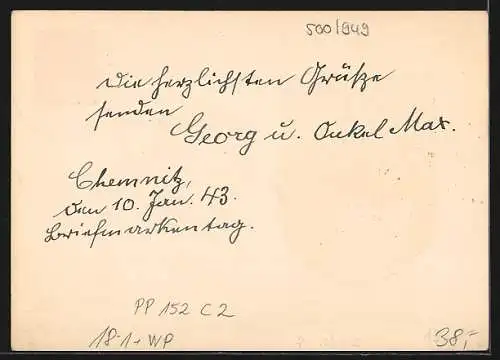 500/949
die herzlichsten Grüße
senden
Georg u. Onkel Max.
Chemnitz,
den 10. Jan. 43.
Briefmarkentag.
PP 152 C 2
18-1- WP
38,-